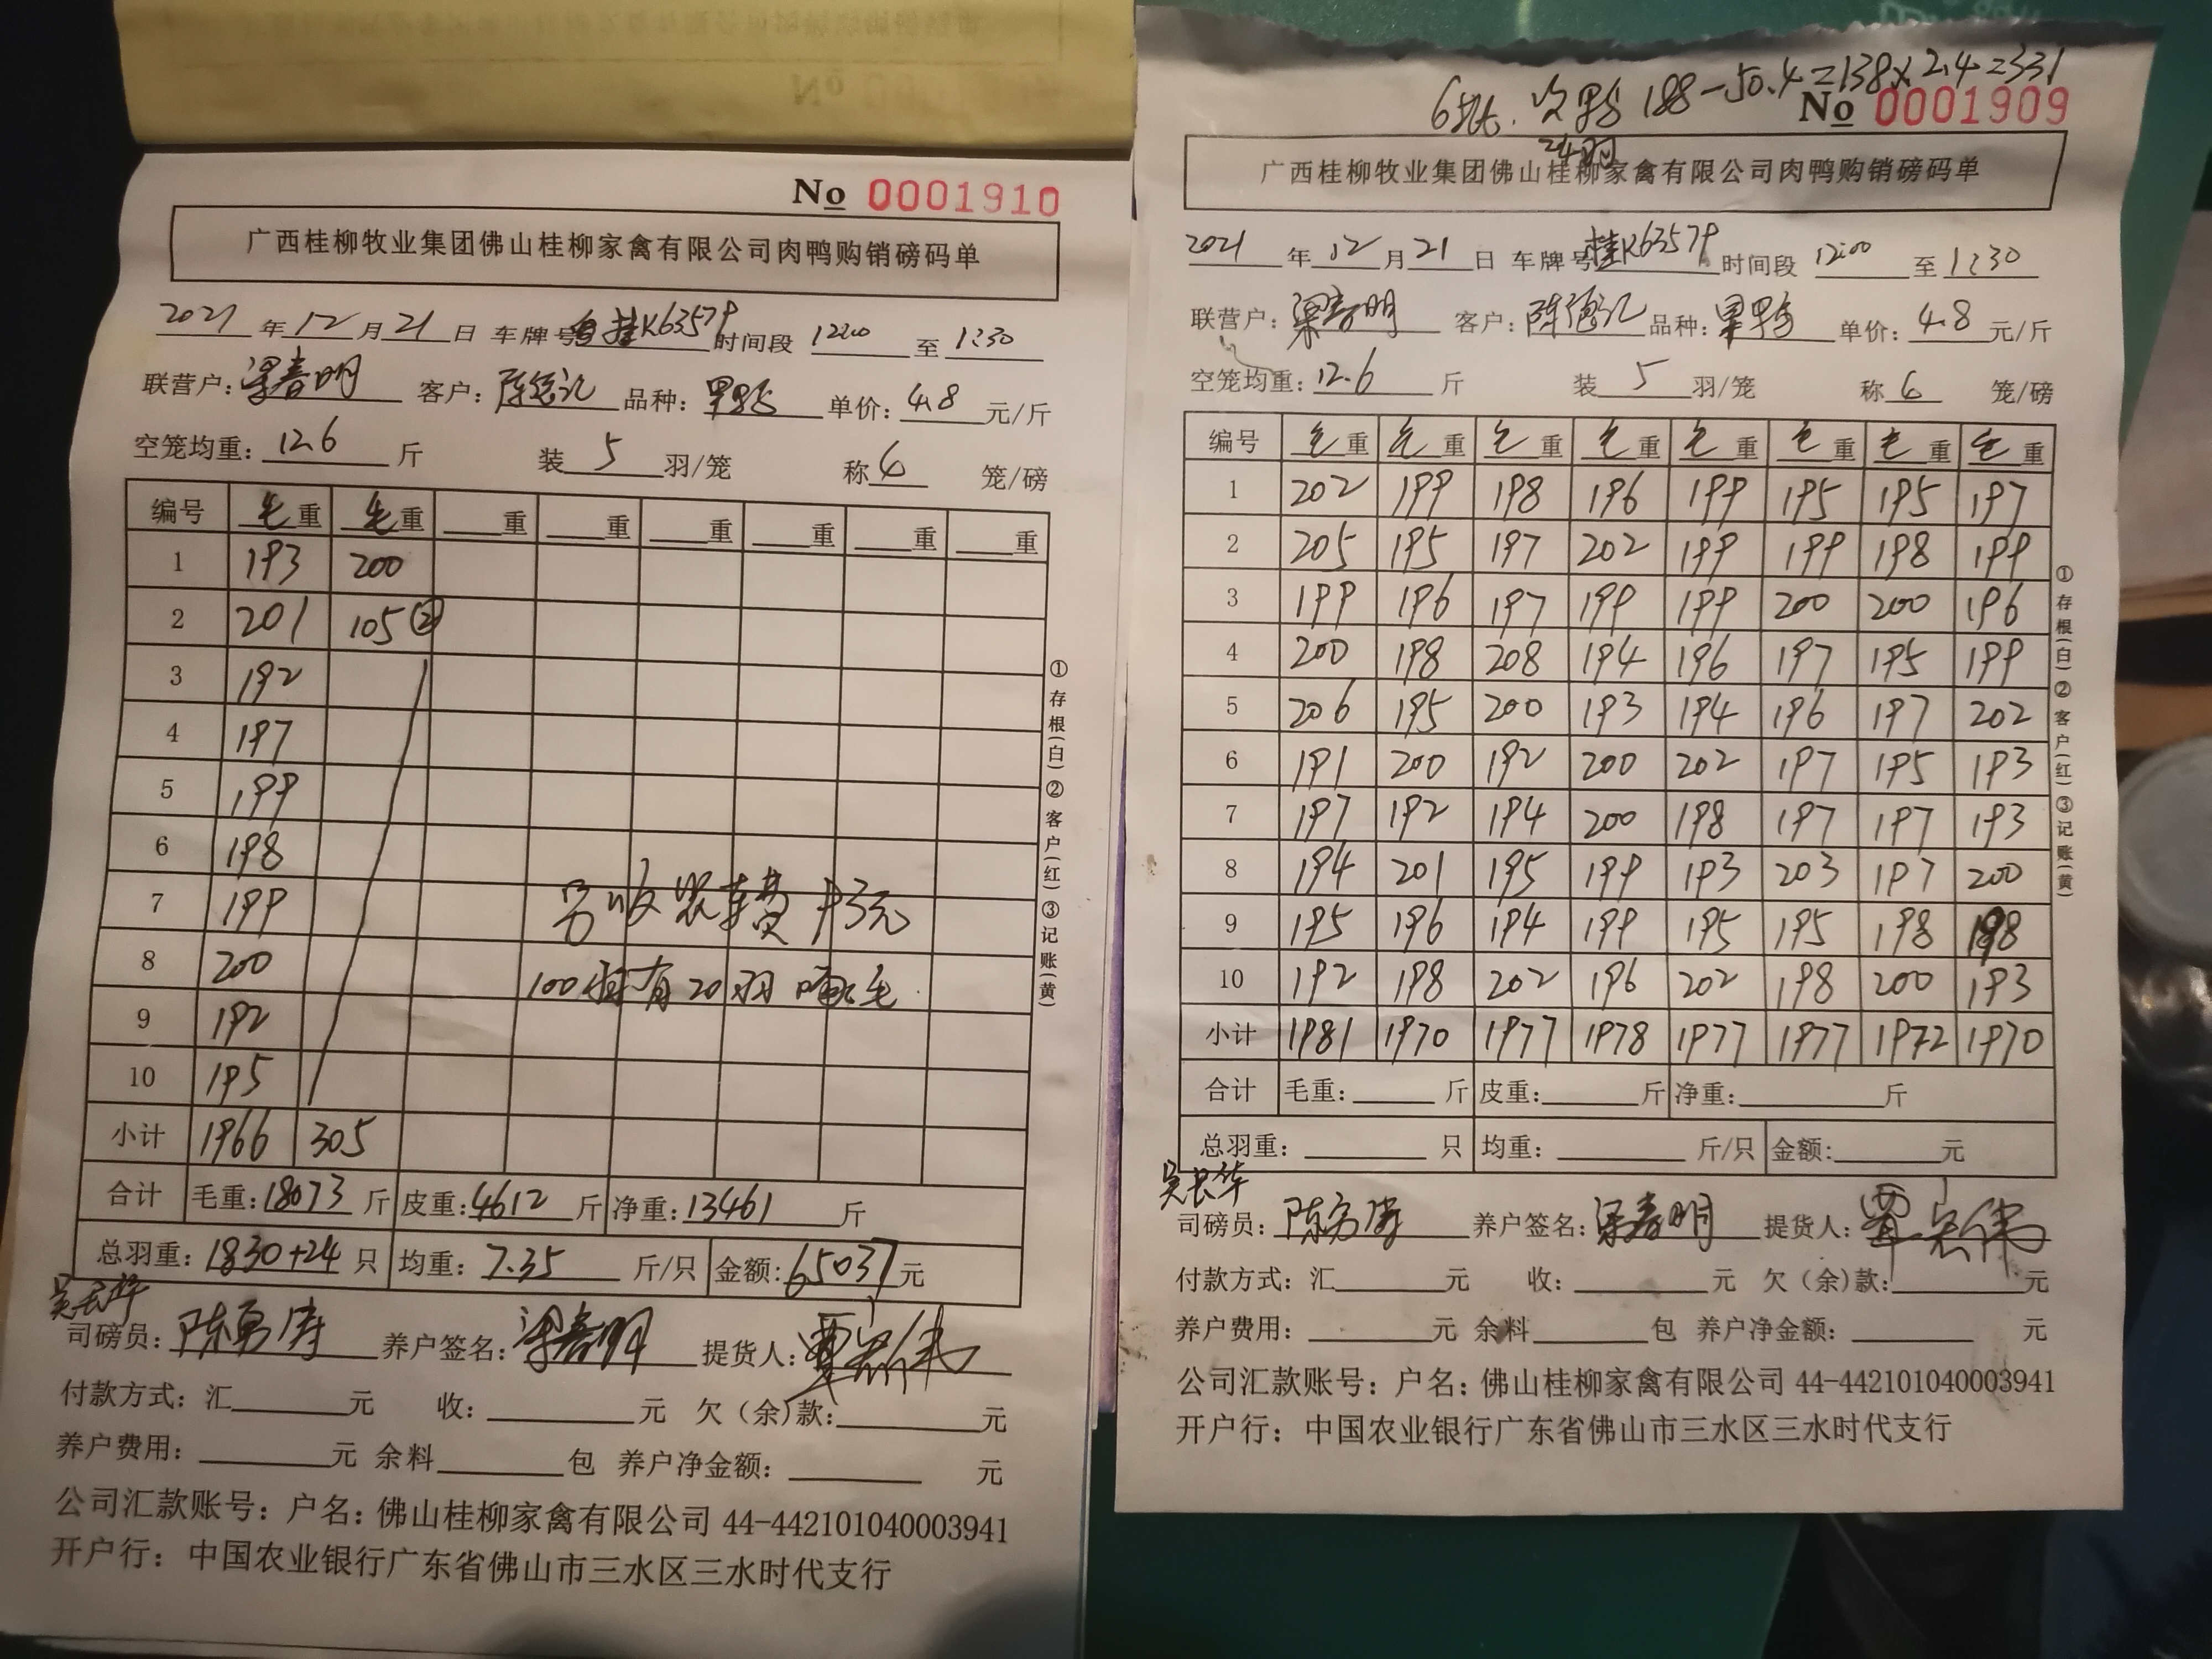 No 0001910
广西桂柳牧业集团佛山桂柳家禽有限公司肉鸭购销磅码单
2021 年 12 月 21 日 车牌号 桂K63579 时间段 12:00 至 1:30
联营户: 梁春明 客户: 陈德记 品种: 单价: 4.8 元/斤
空笼均重: 12.6 斤 装 5 羽/笼 称 6 笼/磅
编号 毛重 毛重 重 重 重 重 重 重
1 193 200
2 201 105 ②
3 192
4 197
5 199
6 198
7 199
8 200
9 192
10 195
小计 1966 305
另收装车费 93元
100 有 20羽 毛
合计 毛重: 18073 斤 皮重: 4612 斤 净重: 13461 斤
总羽重: 1830+24 只 均重: 7.35 斤/只 金额: 65037 元
司磅员: 养户签名: 梁春明 提货人:
付款方式: 汇 元 收: 元 欠（余）款: 元
养户费用: 元 余料 包 养户净金额: 元
公司汇款账号：户名：佛山桂柳家禽有限公司 44-442101040003941
开户行：中国农业银行广东省佛山市三水区三水时代支行
①存根(白)②客户(红)③记账(黄)
188-50.4=138×2.4=331
24羽
No 0001909
广西桂柳牧业集团佛山桂柳家禽有限公司肉鸭购销磅码单
2021 年 12 月 21 日 车牌号 桂K63579 时间段 12:00 至 1:30
联营户: 梁春明 客户: 陈德记 品种: 单价: 4.8 元/斤
空笼均重: 12.6 斤 装 5 羽/笼 称 6 笼/磅
编号 毛重 毛重 毛重 毛重 毛重 毛重 毛重 毛重
1 202 199 198 196 199 195 195 197
2 205 195 197 202 199 199 198 199
3 199 196 197 199 199 200 200 196
4 200 198 208 194 196 197 195 199
5 206 195 200 193 194 196 197 202
6 191 200 192 200 202 197 195 193
7 197 192 194 200 198 197 197 193
8 194 201 195 199 193 203 197 200
9 195 196 194 199 195 195 198 198
10 192 198 202 196 202 198 200 193
小计 1981 1970 1977 1978 1977 1977 1972 1970
合计 毛重: 斤 皮重: 斤 净重: 斤
总羽重: 只 均重: 斤/只 金额: 元
司磅员: 养户签名: 梁春明 提货人:
付款方式: 汇 元 收: 元 欠（余）款: 元
养户费用: 元 余料 包 养户净金额: 元
公司汇款账号：户名：佛山桂柳家禽有限公司 44-442101040003941
开户行：中国农业银行广东省佛山市三水区三水时代支行
①存根(白)②客户(红)③记账(黄)